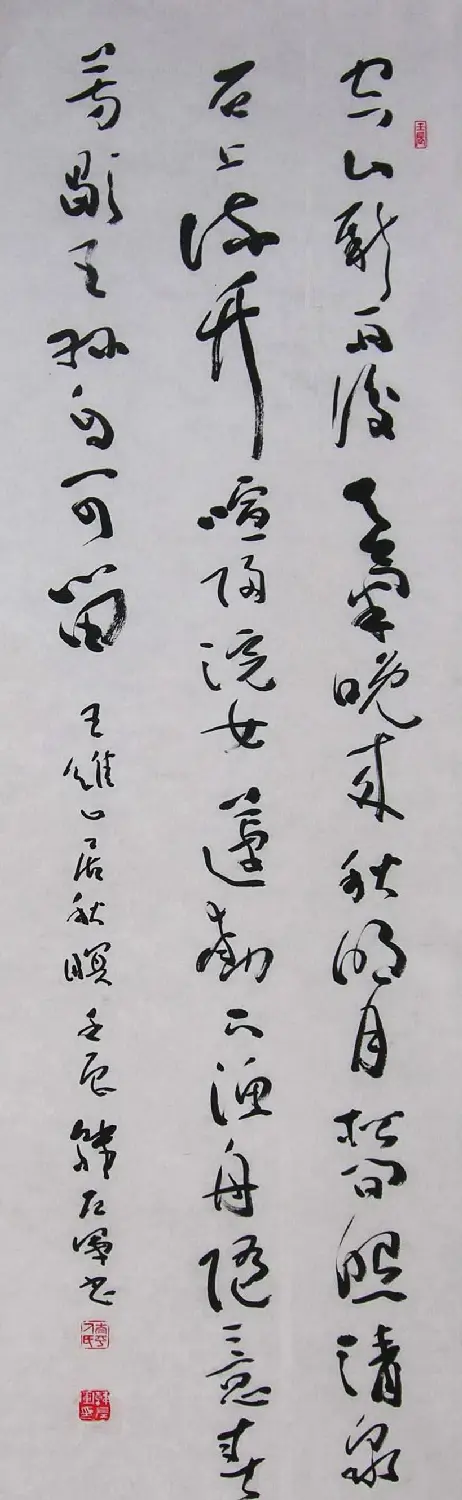 空山新雨後天氣晚來秋明月松間照清泉
石上流竹喧歸浣女蓮動下漁舟隨意春
芳歇王孫自可留 王維山居秋暝 壬辰 書